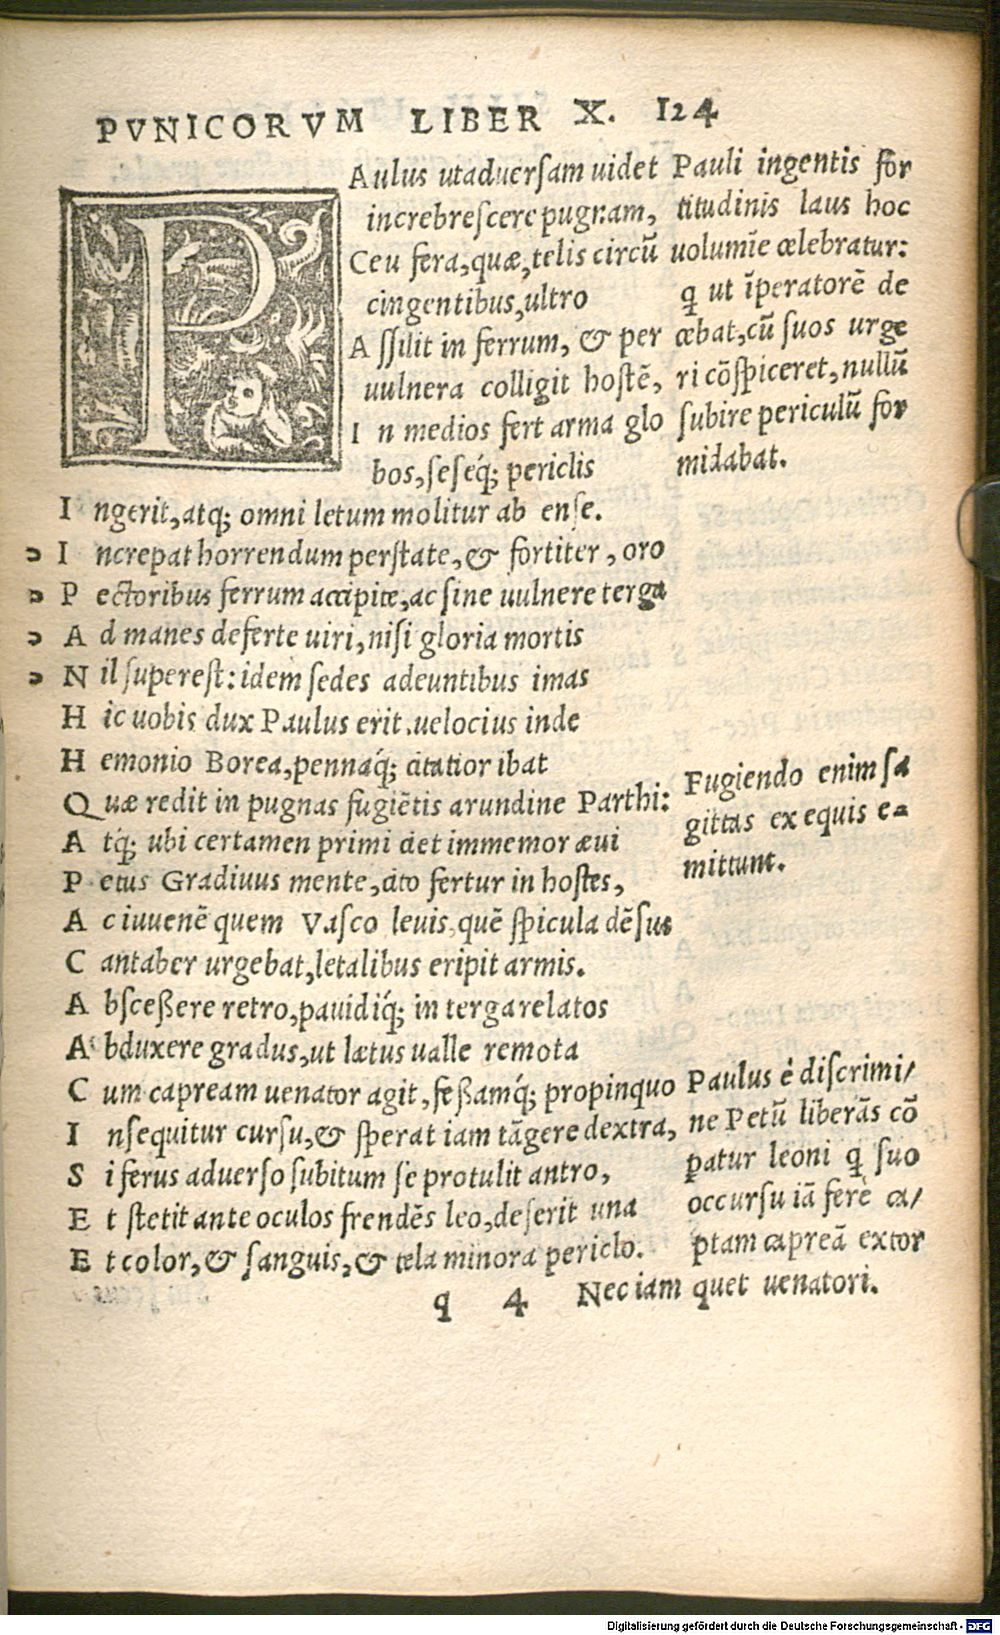 PVNICORVM LIBER X. 124
PAulus utaduersam uidet
increbrescere pugnam,
Ceu fera, quæ, telis circũ
cingentibus, ultro
Assilit in ferrum, & per
uulnera colligit hostẽ,
In medios fert arma glo
bos, seseq́; periclis
Ingerit, atq; omni letum molitur ab ense.
Increpat horrendum perstate, & fortiter, oro
Pectoribus ferrum accipite, ac sine uulnere terga
Ad manes deferte uiri, nisi gloria mortis
Nil superest: idem sedes adeuntibus imas
Hic uobis dux Paulus erit. uelocius inde
Hemonio Borea, pennaq́; citatior ibat
Quæ redit in pugnas fugiẽtis arundine Parthi:
Atq́; ubi certamen primi ciet immemor æui
Petus Gradiuus mente, cito fertur in hostes,
Ac iuuenẽ quem Vasco leuis, quẽ spicula dẽsus
Cantaber urgebat, letalibus eripit armis.
Abscessere retro, pauidiq́; in terga relatos
Abduxere gradus, ut lætus ualle remota
Cum capream uenator agit, fessamq́; propinquo
Insequitur cursu, & sperat iam tãgere dextra,
Si ferus aduerso subitum se protulit antro,
Et stetit ante oculos frendẽs leo, deserit una
Et color, & sanguis, & tela minora periclo.
q 4 Nec iam
Pauli ingentis for
titudinis laus hoc
uolumĩe celebratur:
q ut ĩperatorẽ de
cebat, cũ suos urge
ri cõspiceret, nullũ
subire periculũ for
midabat.
Fugiendo enim sa
gittas ex equis e-
mittunt.
Paulus ẻ discrimi/
ne Petũ liberãs cõ
patur leoni q suo
occursu iã fere ca/
ptam capreã extor
quet uenatori.
Digitalisierung gefördert durch die Deutsche Forschungsgemeinschaft - DFG